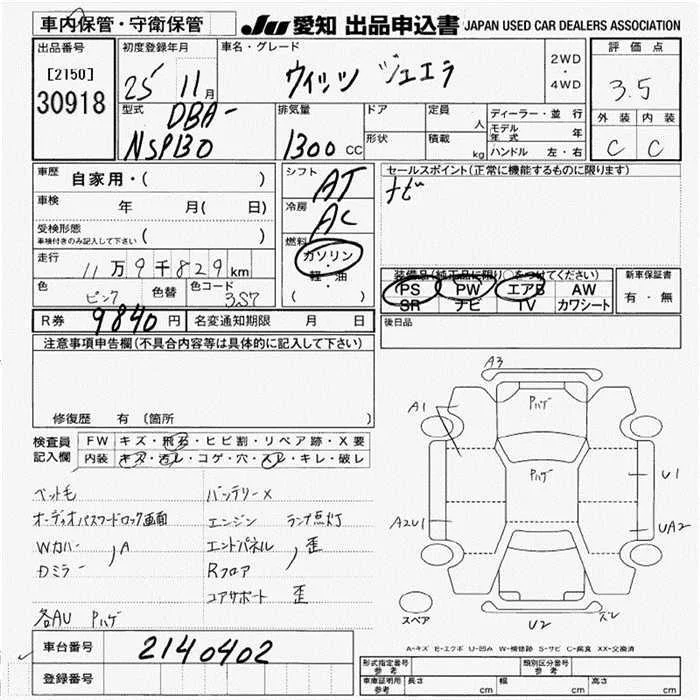 車内保管・守衛保管
JU 愛知 出品申込書 JAPAN USED CAR DEALERS ASSOCIATION
出品番号
[2150]
30918
初度登録年月
25 11月
車名・グレード
ヴィッツ ジュエラ
2WD
・
4WD
評価点
3.5
外装 内装
C C
型式
DBA-
NSP130
排気量
1300 CC
ドア
形状
定員
人
積載
kg
ディーラー・並行
モデル年式 年
ハンドル 左・右
車歴
自家用・( )
車検
年 月( 日)
受検形態
車検付きのみ記入して下さい ( )
走行
11万9千829km
色
ピンク
色替
色コード
3S7
シフト
AT
冷房
AC
燃料
ガソリン
・
軽・油
( )
セールスポイント(正常に機能するものに限ります)
ナビ
装備品(純正品に限り○をつけてください)
PS PW エアB AW
SR ナビ TV カワシート
新車保証書
有・無
R券 9840円 名変通知期限 月 日
後日品
注意事項申告欄(不具合内容等は具体的に記入して下さい)
修復歴 有(箇所 )
検査員
記入欄
FW キズ・飛石・ヒビ割・リペア跡・X要
内装 キズ・汚レ・コゲ・穴・スレ・キレ・破レ
ペット毛
オーディオパスワードロック画面
Wカバー
Dミラー , A
各AU Pハゲ
バッテリーX
エンジン ランプ点灯
エンドパネル
Rフロア , 歪
コアサポート 歪
A3
A1
Pハゲ
Pハゲ
U1
A2U1
UA2
スペア
U2
ズレ
A-キズ E-エクボ U-凹み W-補修跡 S-サビ C-腐蝕 XX-交換済
車台番号 2140402
登録番号
形式指定番号
参考
類別区分番号
参考
車庫証明用
参考
長さ cm
幅 cm
高さ cm